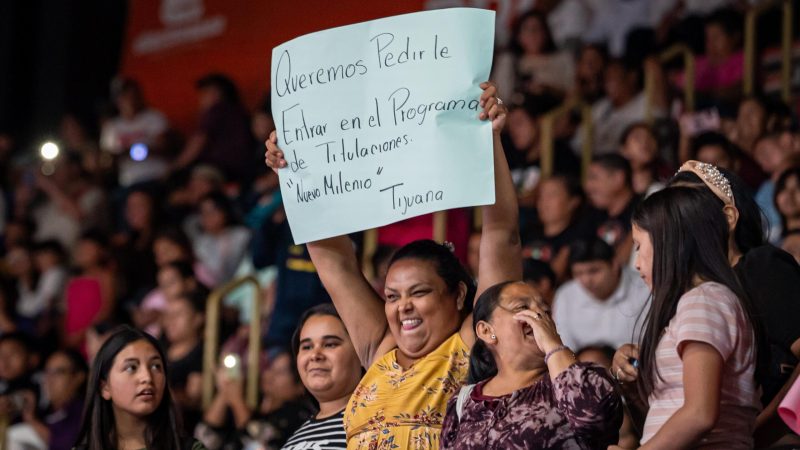 Queremos Pedir le
Entrar en el Programa
de Titulaciones.
"Nuevo Milenio" Tijuana